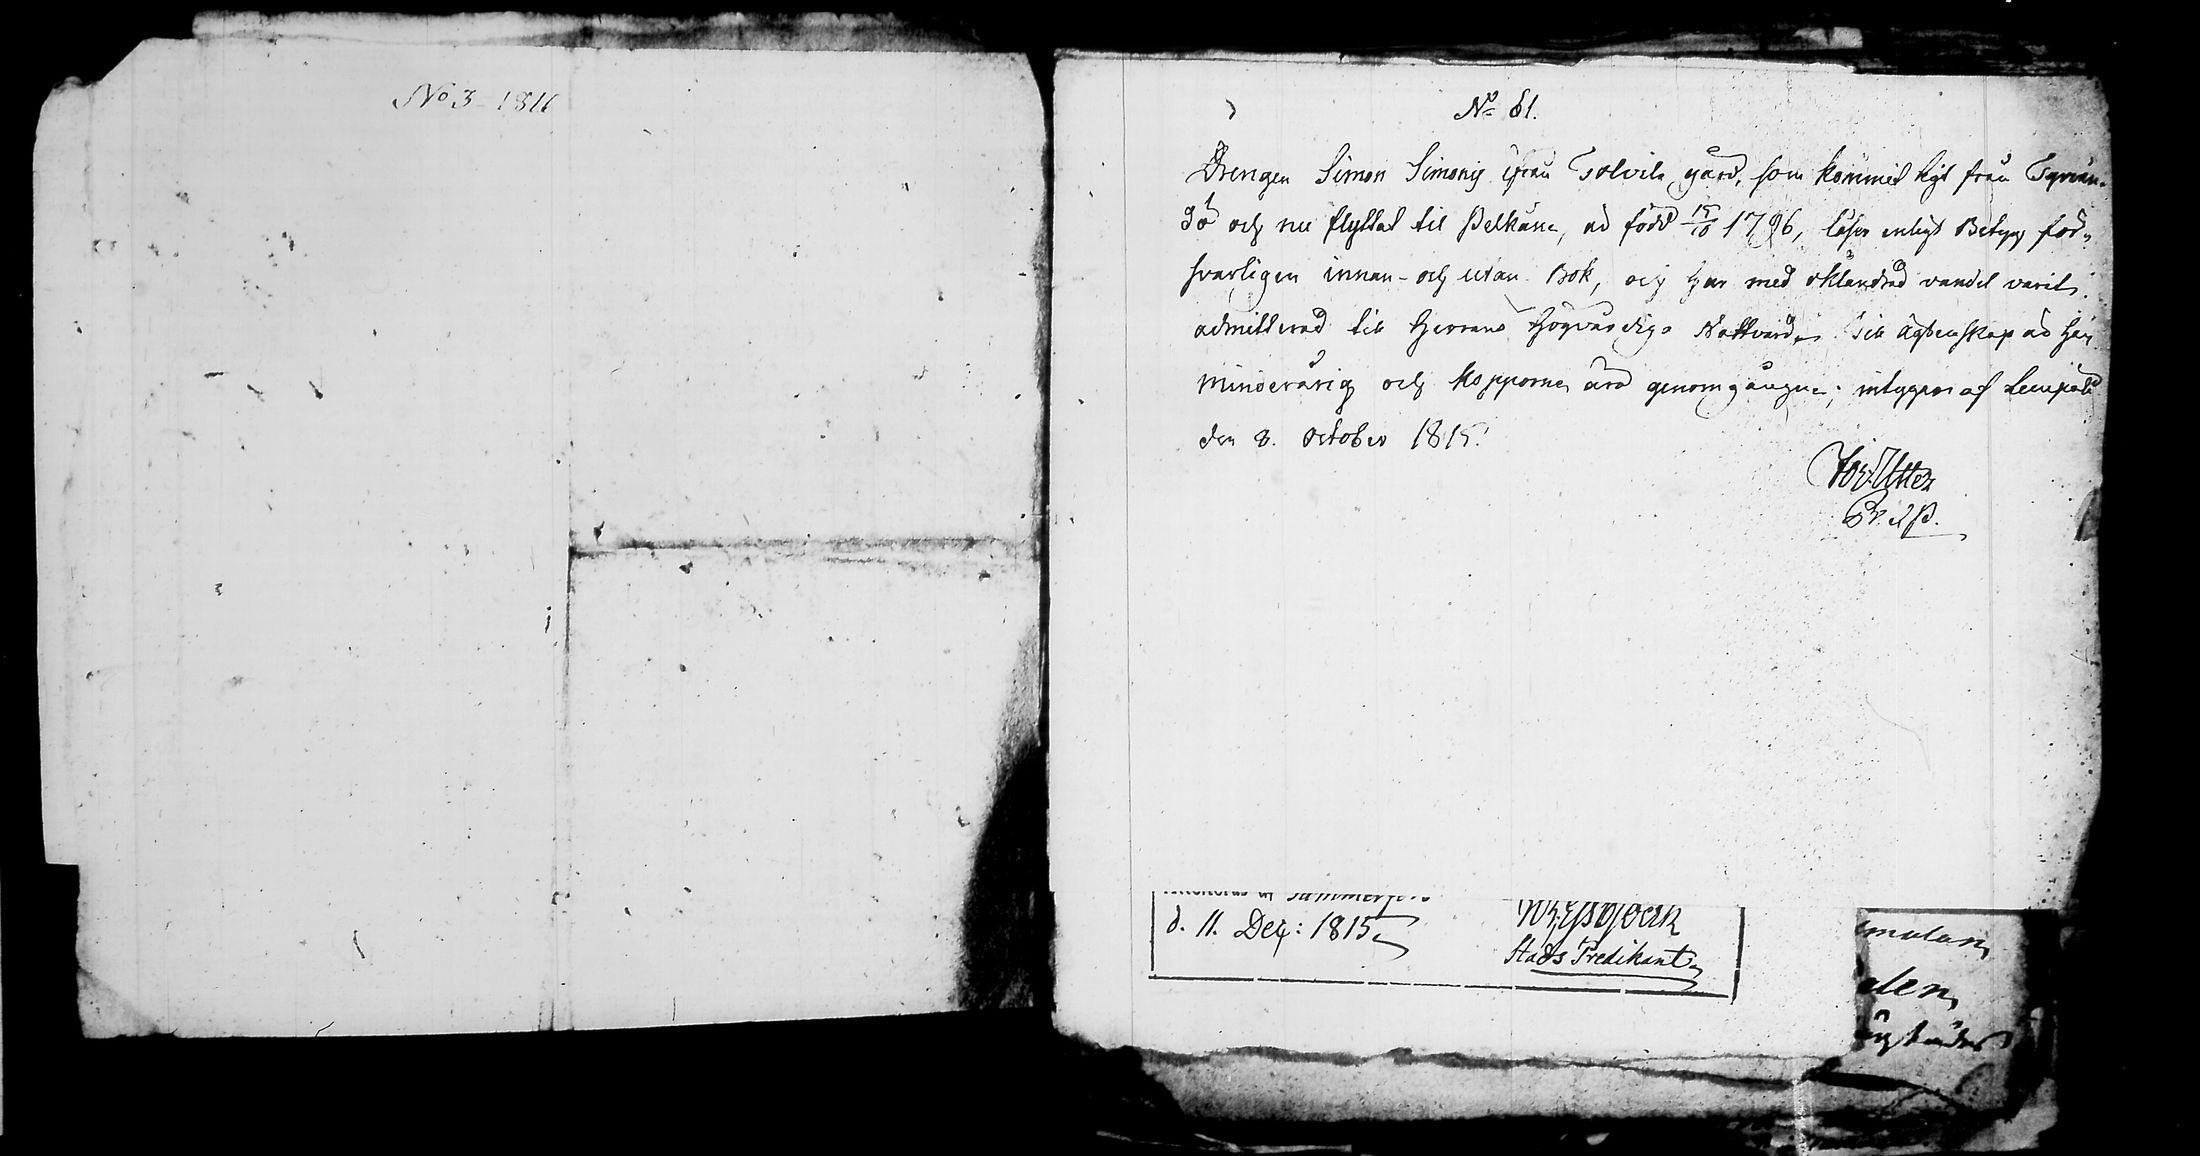 No 3 - 1816
No 61.
Drengen Simon Simonis ifrån Tolvila gård, som kommit hit från Tyrvän-
dö och nu flyttat til Pelkäne, är född 15/10 1796, läser enligt Betyg för-
svarligen innan- och utan Bok, och har med oklandrad vandel varit
admitterad til Herrans Högvärdiga Nattvard. Til Ägtenskap är han
minderårig och kopporne äro genomgångne; intygar af Lempälä
den 8. October 1815.
Utter
d. 11. Dec: 1815
Stads Predikant